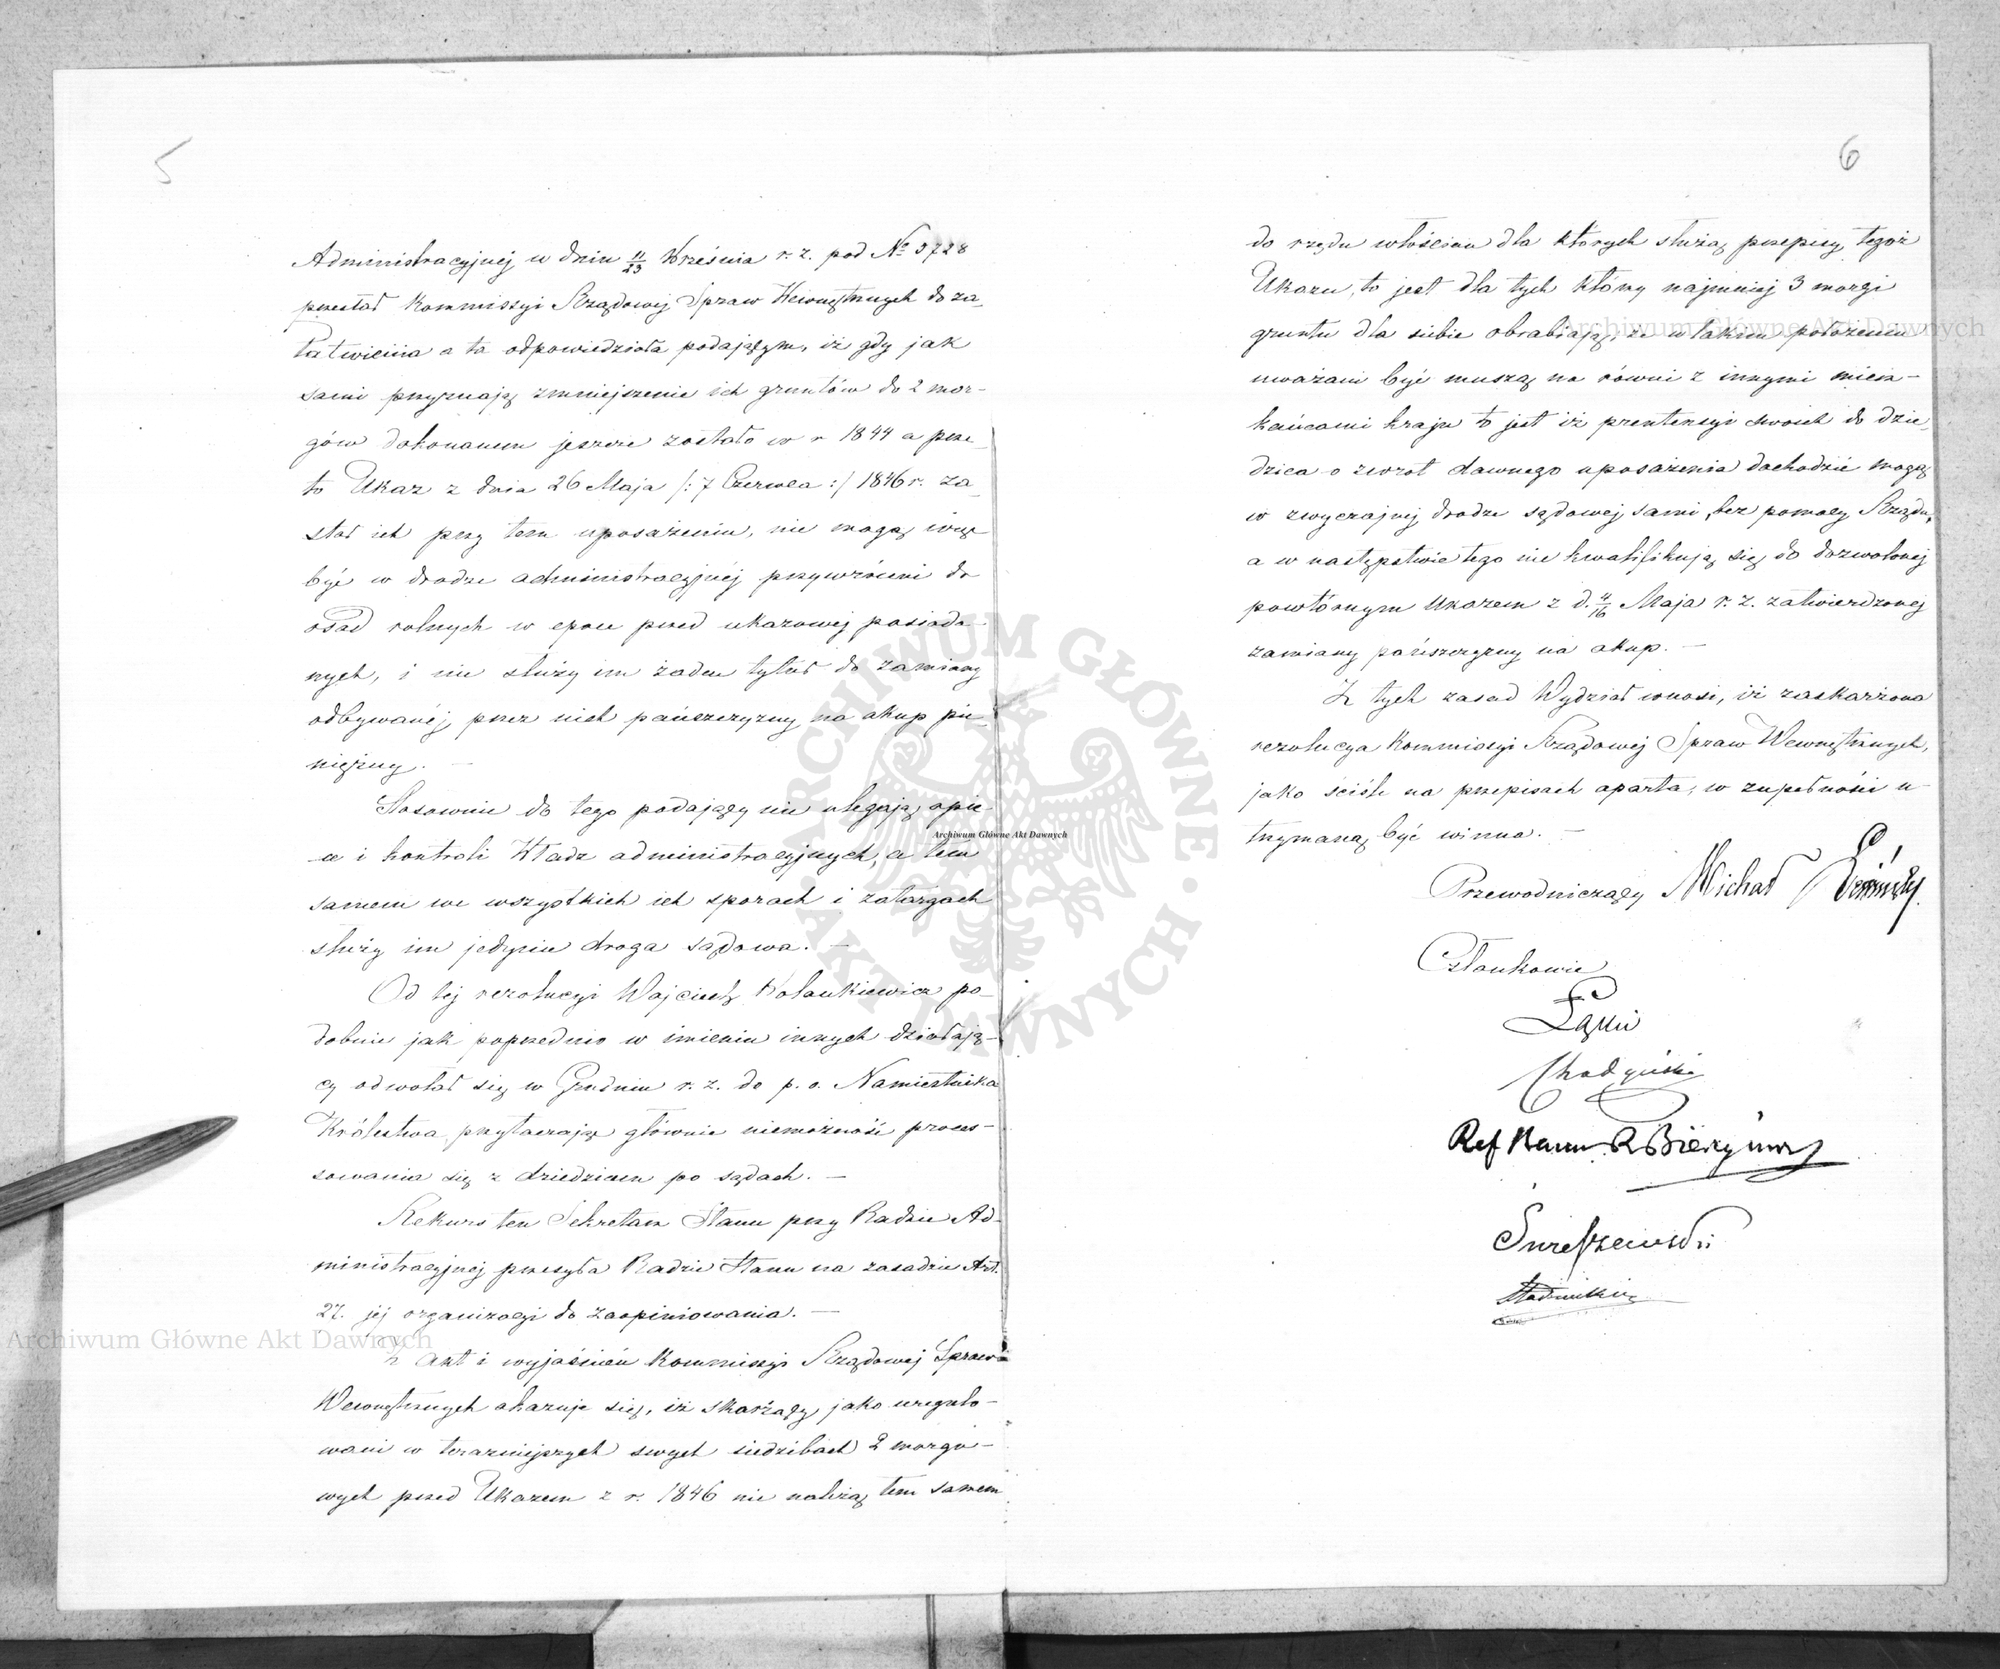 5
Administracyjnej w dniu 11/23 Września r. z. pod No 5728
przesłał Kommissyi Rządowej Spraw Wewnętrznych do za-
łatwienia a ta odpowiedziała podającym, iż gdy jak
sami przyznają zmniejszenie ich gruntów do 2 mor-
gów dokonanem jeszcze zostało w r 1844 a prze-
to Ukaz z dnia 26 Maja /: 7 Czerwca :/ 1846 r. za-
stał ich przy tem uposażeniu, nie mogą więc
być w drodze administracyjnéj przywróceni do
osad rolnych w epoce przed ukazowej posiada-
nych, i nie służy im żaden tytuł do zamiany
odbywanéj przez nich pańszczyzny na okup pie-
niężny. —
Stosownie do tego podający nie ulegają opie-
ce i kontroli Władz administracyjnych, a tem
samem we wszystkich ich sporach i zatargach
służy im jedynie droga sądowa. —
Od tej rezolucyi Wojciech Kolankiewicz po-
dobnie jak poprzednio w imieniu innych działają-
cy odwołał się w Grudniu r. z. do p. o. Namiestnika
Królestwa przytaczając głównie niemożność proces-
sowania się z dziedzicem po sądach. —
Rekurs ten Sekretarz Stanu przy Radzie Ad-
ministracyjnej przesyła Radzie Stanu na zasadzie Art.
27. jej organizacyi do zaopiniowania. —
Z akt i wyjaśnień Kommissyi Rządowej Spraw
Wewnętrznych okazuje się, iż skarżący jako uregulo-
wani w teraźniejszych swych siedzibach 2 morgo-
wych przed Ukazem z r. 1846 nie należą tem samem
6
do rzędu włościan dla których służą przepisy tegoż
Ukazu, to jest dla tych którzy najmniej 3 morgi
gruntu dla siebie obrabiają; że w takim położeniu
uważani być muszą na równi z innymi miesz-
kańcami kraju to jest iż pretensyi swoich do dzie-
dzica o zwrot dawnego uposażenia dochodzić mogą
w zwyczajnej drodze sądowej sami, bez pomocy Rządu,
a w następstwie tego nie kwalifikują się do dozwolonej
powtórnym Ukazem z d. 4/16 Maja r. z. zatwierdzonej
zamiany pańszczyzny na okup. —
Z tych zasad Wydział wnosi, iż zaskarżona
rezolucya Kommissyi Rządowej Spraw Wewnętrznych,
jako ściśle na przepisach oparta, w zupełności u-
trzymaną być winna. —
Przewodniczący Michał
Członkowie
Łęski
Chodyński
Ref Stanu
Archiwum Główne Akt Dawnych
Archiwum Główne Akt Dawnych
Archiwum Główne Akt Dawnych
ARCHIWUM GŁÓWNE AKT DAWNYCH